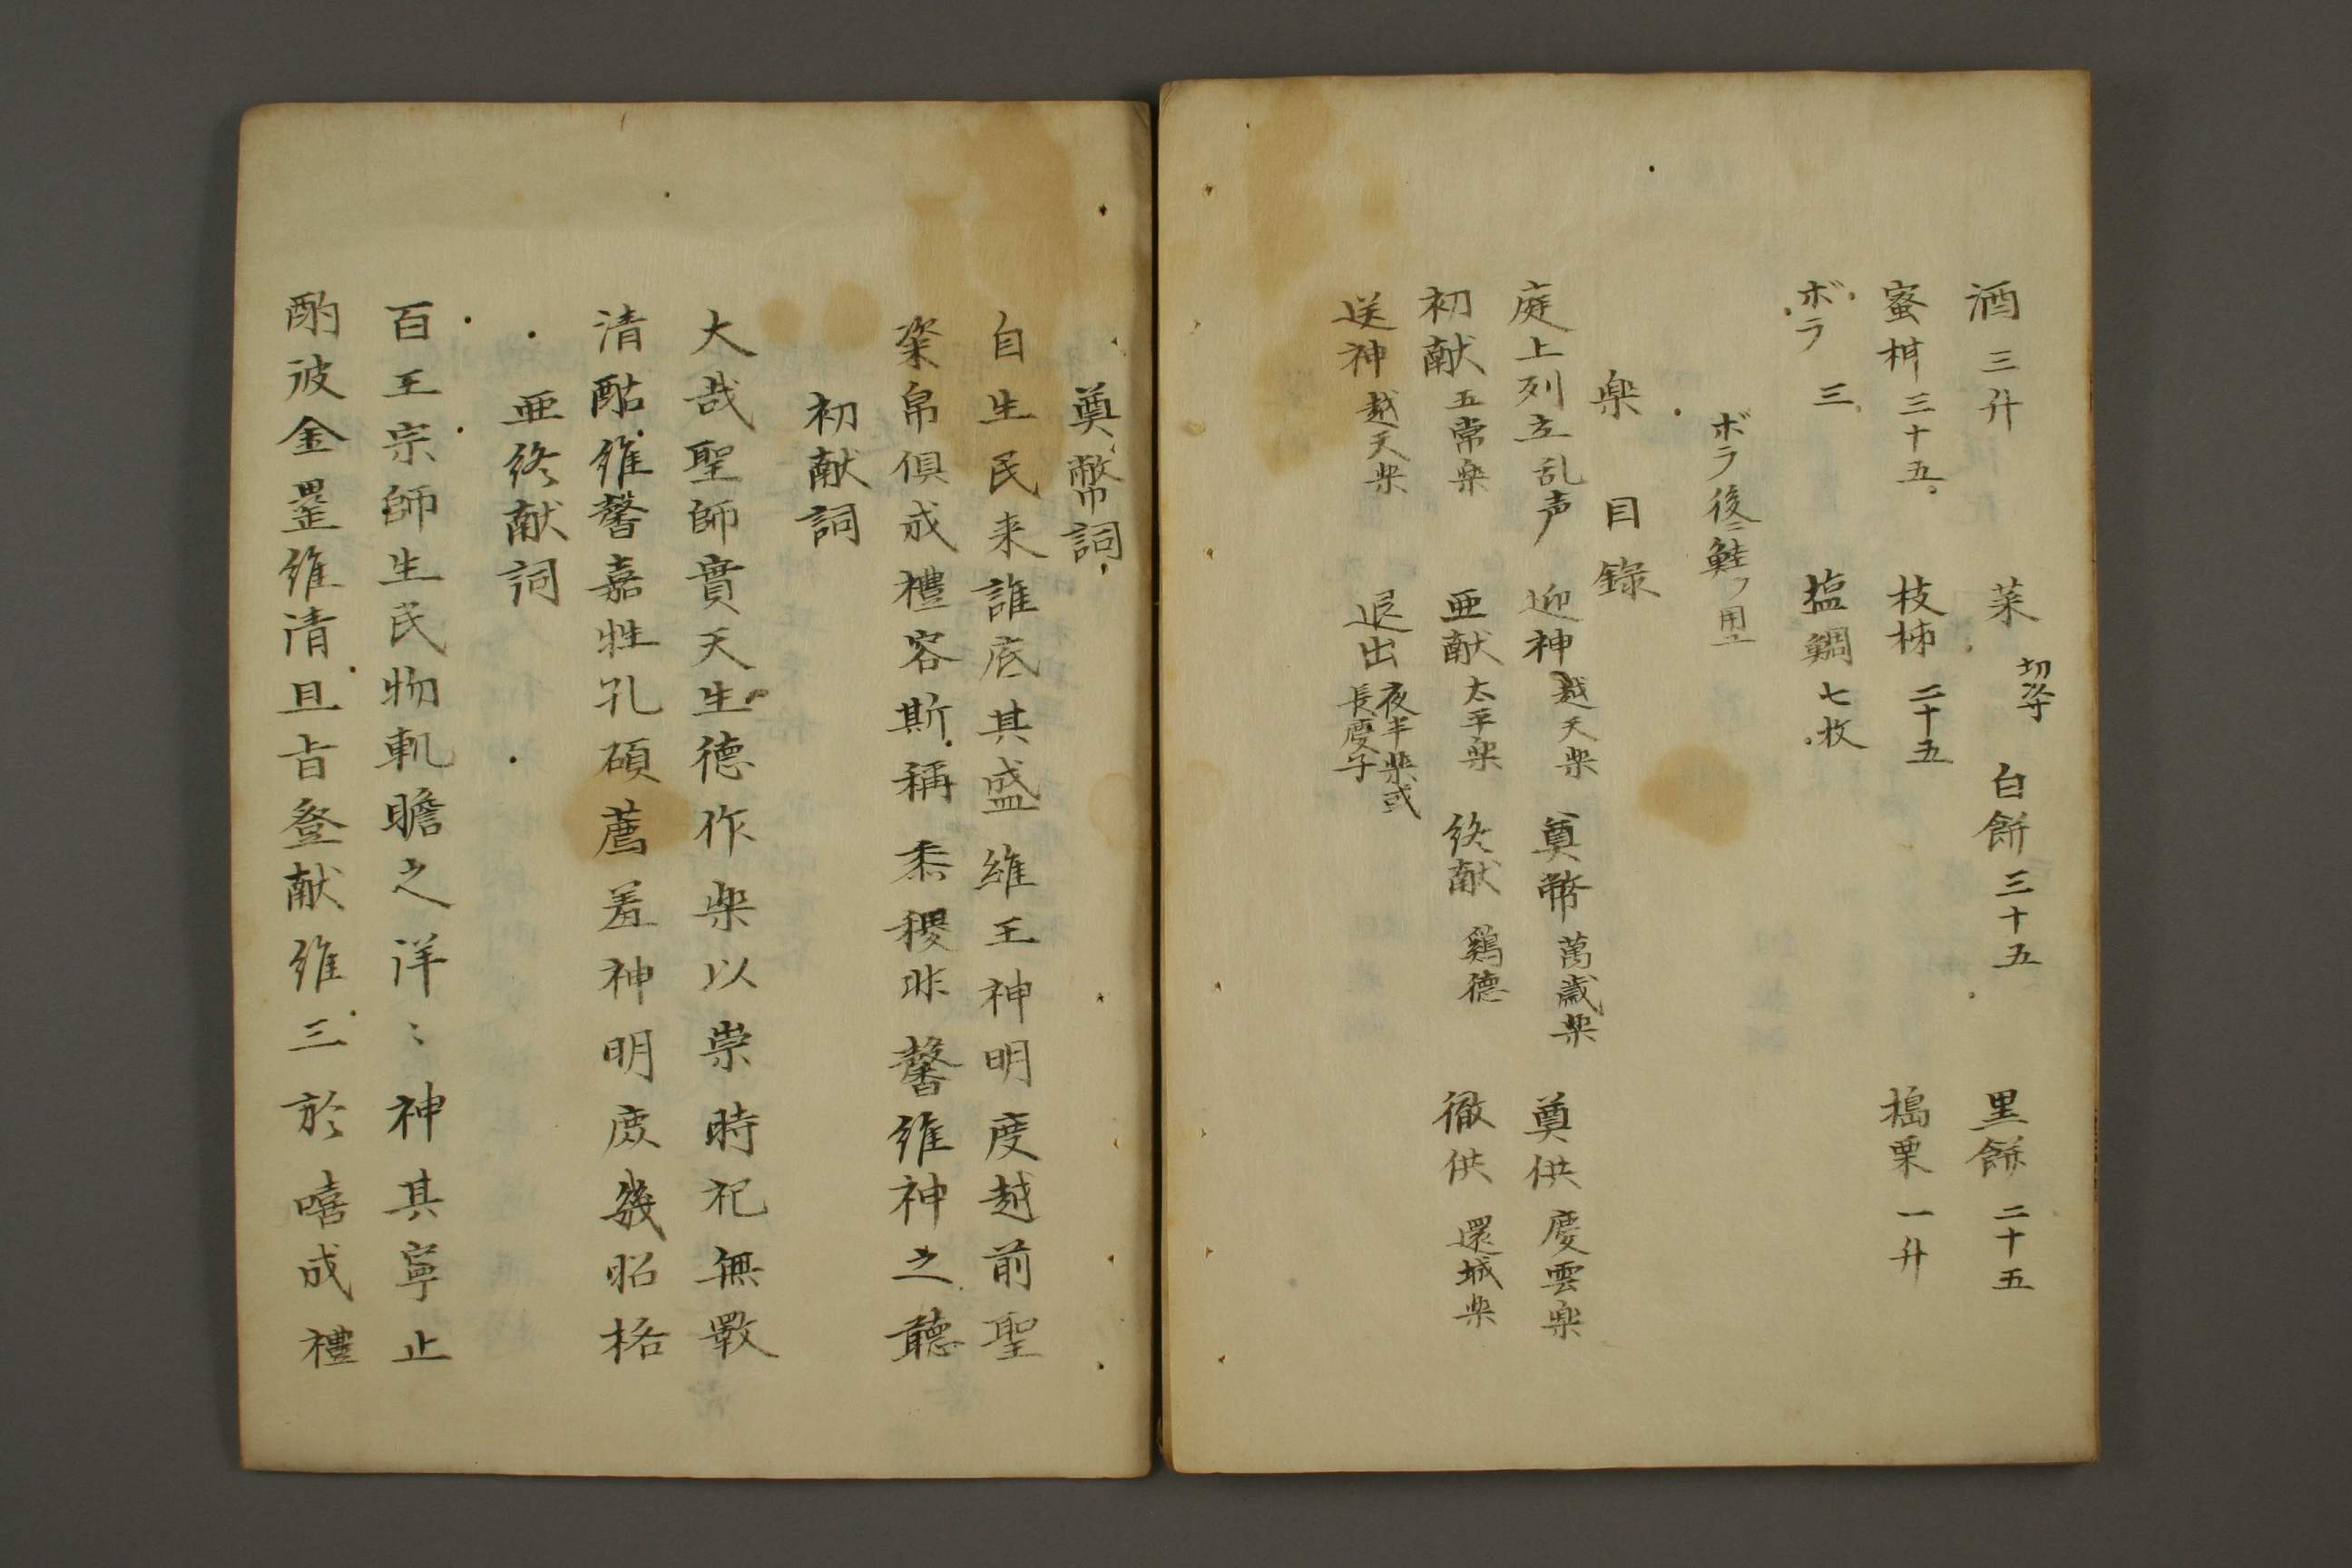 酒 三升 菜 切 白餅 三十五 黒餅 二十五
蜜柑 三十五 枝柿 二十五 搗栗 一升
ボラ 三 塩鯛 七枚
ボラ後ニ鮭ヲ用
楽目録
庭上列立乱声 迎神 越天楽 奠幣 萬歳楽 奠供 慶雲楽
初献 五常楽 亜献 太平楽 終献 鶏德 徹供 還城楽
送神 越天楽 退出 夜半楽或長慶子
奠幣詞
自生民来誰底其盛維王神明度越前聖
粢帛倶成禮容斯稱黍稷非馨維神之聽
初献詞
大哉聖師實天生德作楽以崇時祀無斁
清酤維馨嘉牲孔碩薦羞神明庶幾昭格
亜終献詞
百王宗師生民物軌瞻之洋〻神其寧止
酌彼金罍維清且旨登献維三於嘻成禮